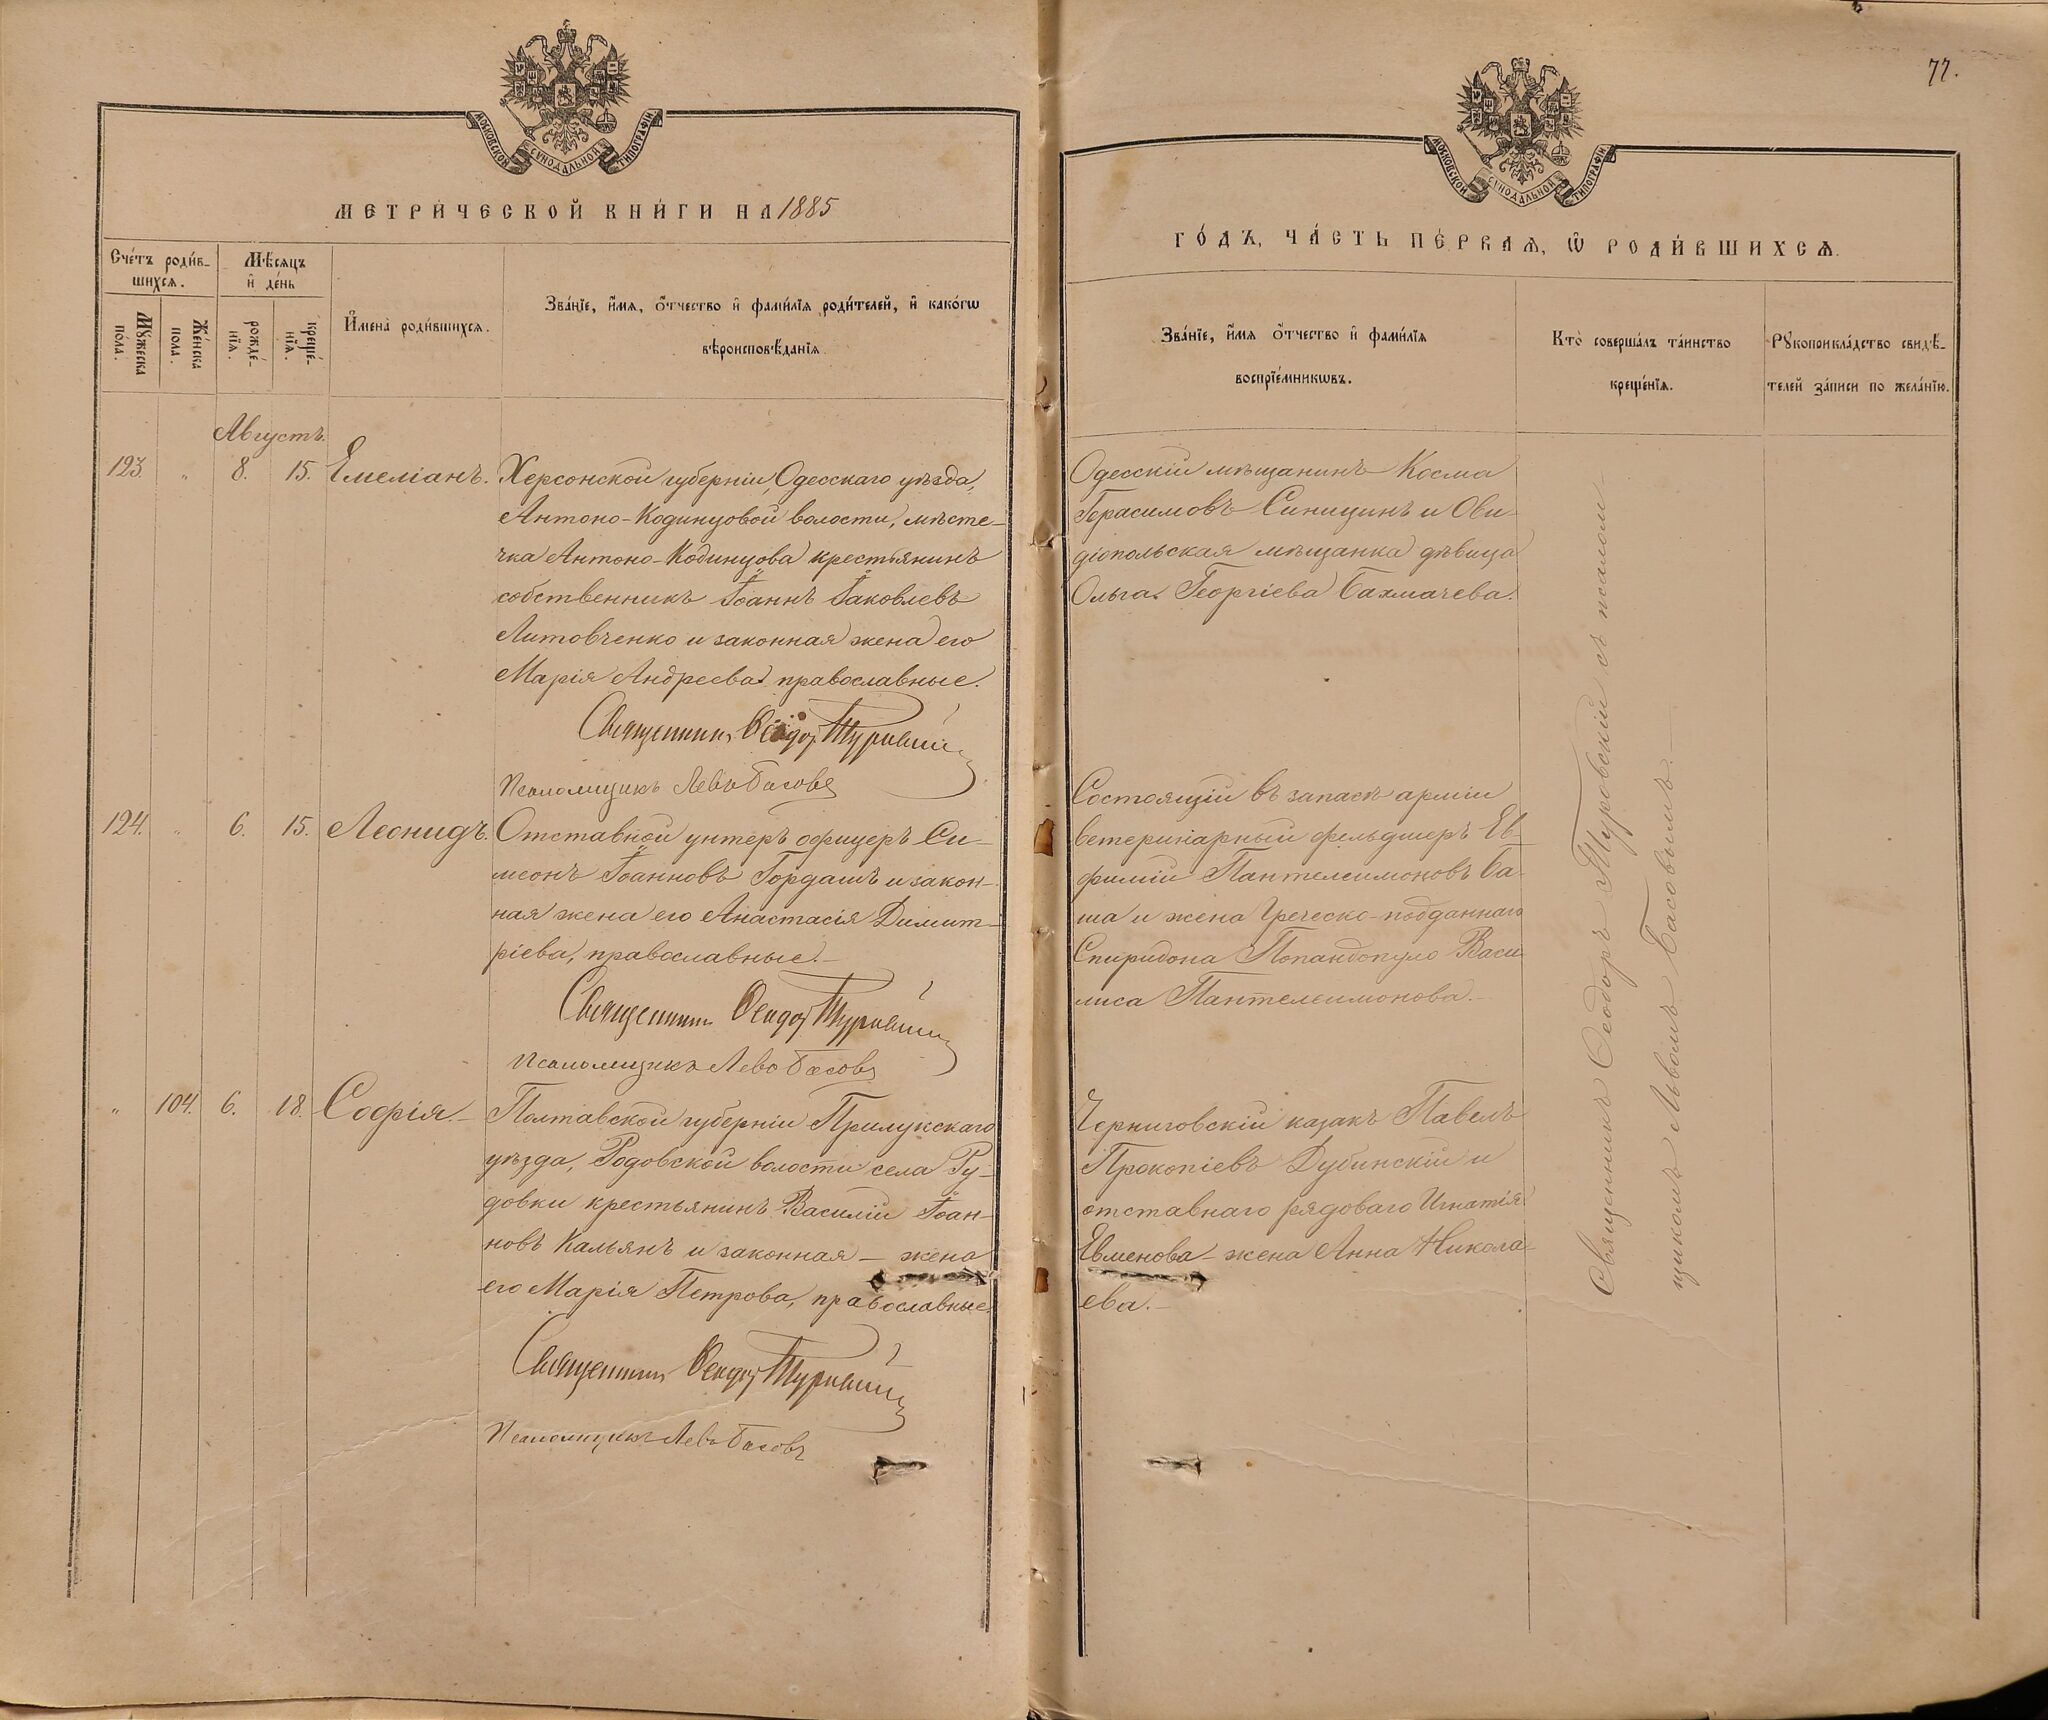 77.
МОСКОВСКОЙ СѴНОДАЛЬНОЙ ТИПОГРАФІИ
МОСКОВСКОЙ СѴНОДАЛЬНОЙ ТИПОГРАФІИ
МЕТРИ́ЧЕСКОЙ КНИ́ГИ НА 1885
ГО́ДЪ, ЧА́СТЬ ПЕ́РВАЯ, Ѡ҆ РОДИ́ВШИХСЯ.
Сче́тъ роди́в-
шихся.
Мѣ́сяцъ
и҆ де́нь
Мꙋ́жеска
по́ла.
Же́нска
пола.
рожде́-
нїя.
креще́-
нїя.
И҆мена̀ роди́вшихся.
Зва́нїе, и҆́мя, ѻ҆́тчество и҆ фами́лїя роди́телей, и҆ како́гѡ
вѣроисповѣ́данїя.
Зва́нїе, и҆́мя ѻ҆́тчество и҆ фами́лїя
воспрїе́мникѡвъ.
Кто̀ соверша́лъ та́инство
креще́нїя.
Рꙋкоприкла́дство свидѣ́-
телей за́писи по жела́нїю.
Августъ.
123. " 8. 15. Емеліанъ.
Херсонской губерніи, Одесскаго уѣзда,
Антоно-Кодинцовой волости, мѣсте-
чка Антоно-Кодинцова крестьянинъ
собственникъ Іоаннъ Іаковлевъ
Литовченко и законная жена его
Марія Андреева православные.
Священникъ Ѳеодоръ Туровскій
Псаломщикъ Левъ Басовъ
Одесскій мѣщанинъ Косма
Герасимовъ Синицинъ и Ови-
діопольская мѣщанка дѣвица
Ольга Георгіева Бахмачева.
124. " 6. 15. Леонидъ.
Отставной унтеръ офицеръ Си-
меонъ Іоанновъ Гордашъ и закон-
ная жена его Анастасія Димит-
ріева, православные.
Священникъ Ѳеодоръ Туровскій
Псаломщикъ Левъ Басовъ
Состоящій въ запасѣ арміи
ветеринарный фельдшеръ Ев-
фимій Пантелеимоновъ Са-
ша и жена Греческо-подданнаго
Спиридона Попандопуло Васи-
лиса Пантелеимонова.
" 104. 6. 18. Софія.
Полтавской губерніи Прилукскаго
уѣзда, Родовской волости села Ру-
довки крестьянинъ Василій Іоан-
новъ Кальянъ и законная жена
его Марія Петрова, православные.
Священникъ Ѳеодоръ Туровскій
Псаломщикъ Левъ Басовъ
Черниговскій казакъ Павелъ
Прокопіевъ Дубинскій и
отставнаго рядоваго Игнатія
Евменова жена Анна Никола-
ева.
Священникъ Ѳеодоръ Туровскій съ псалом-
щикомъ Львомъ Басовымъ.